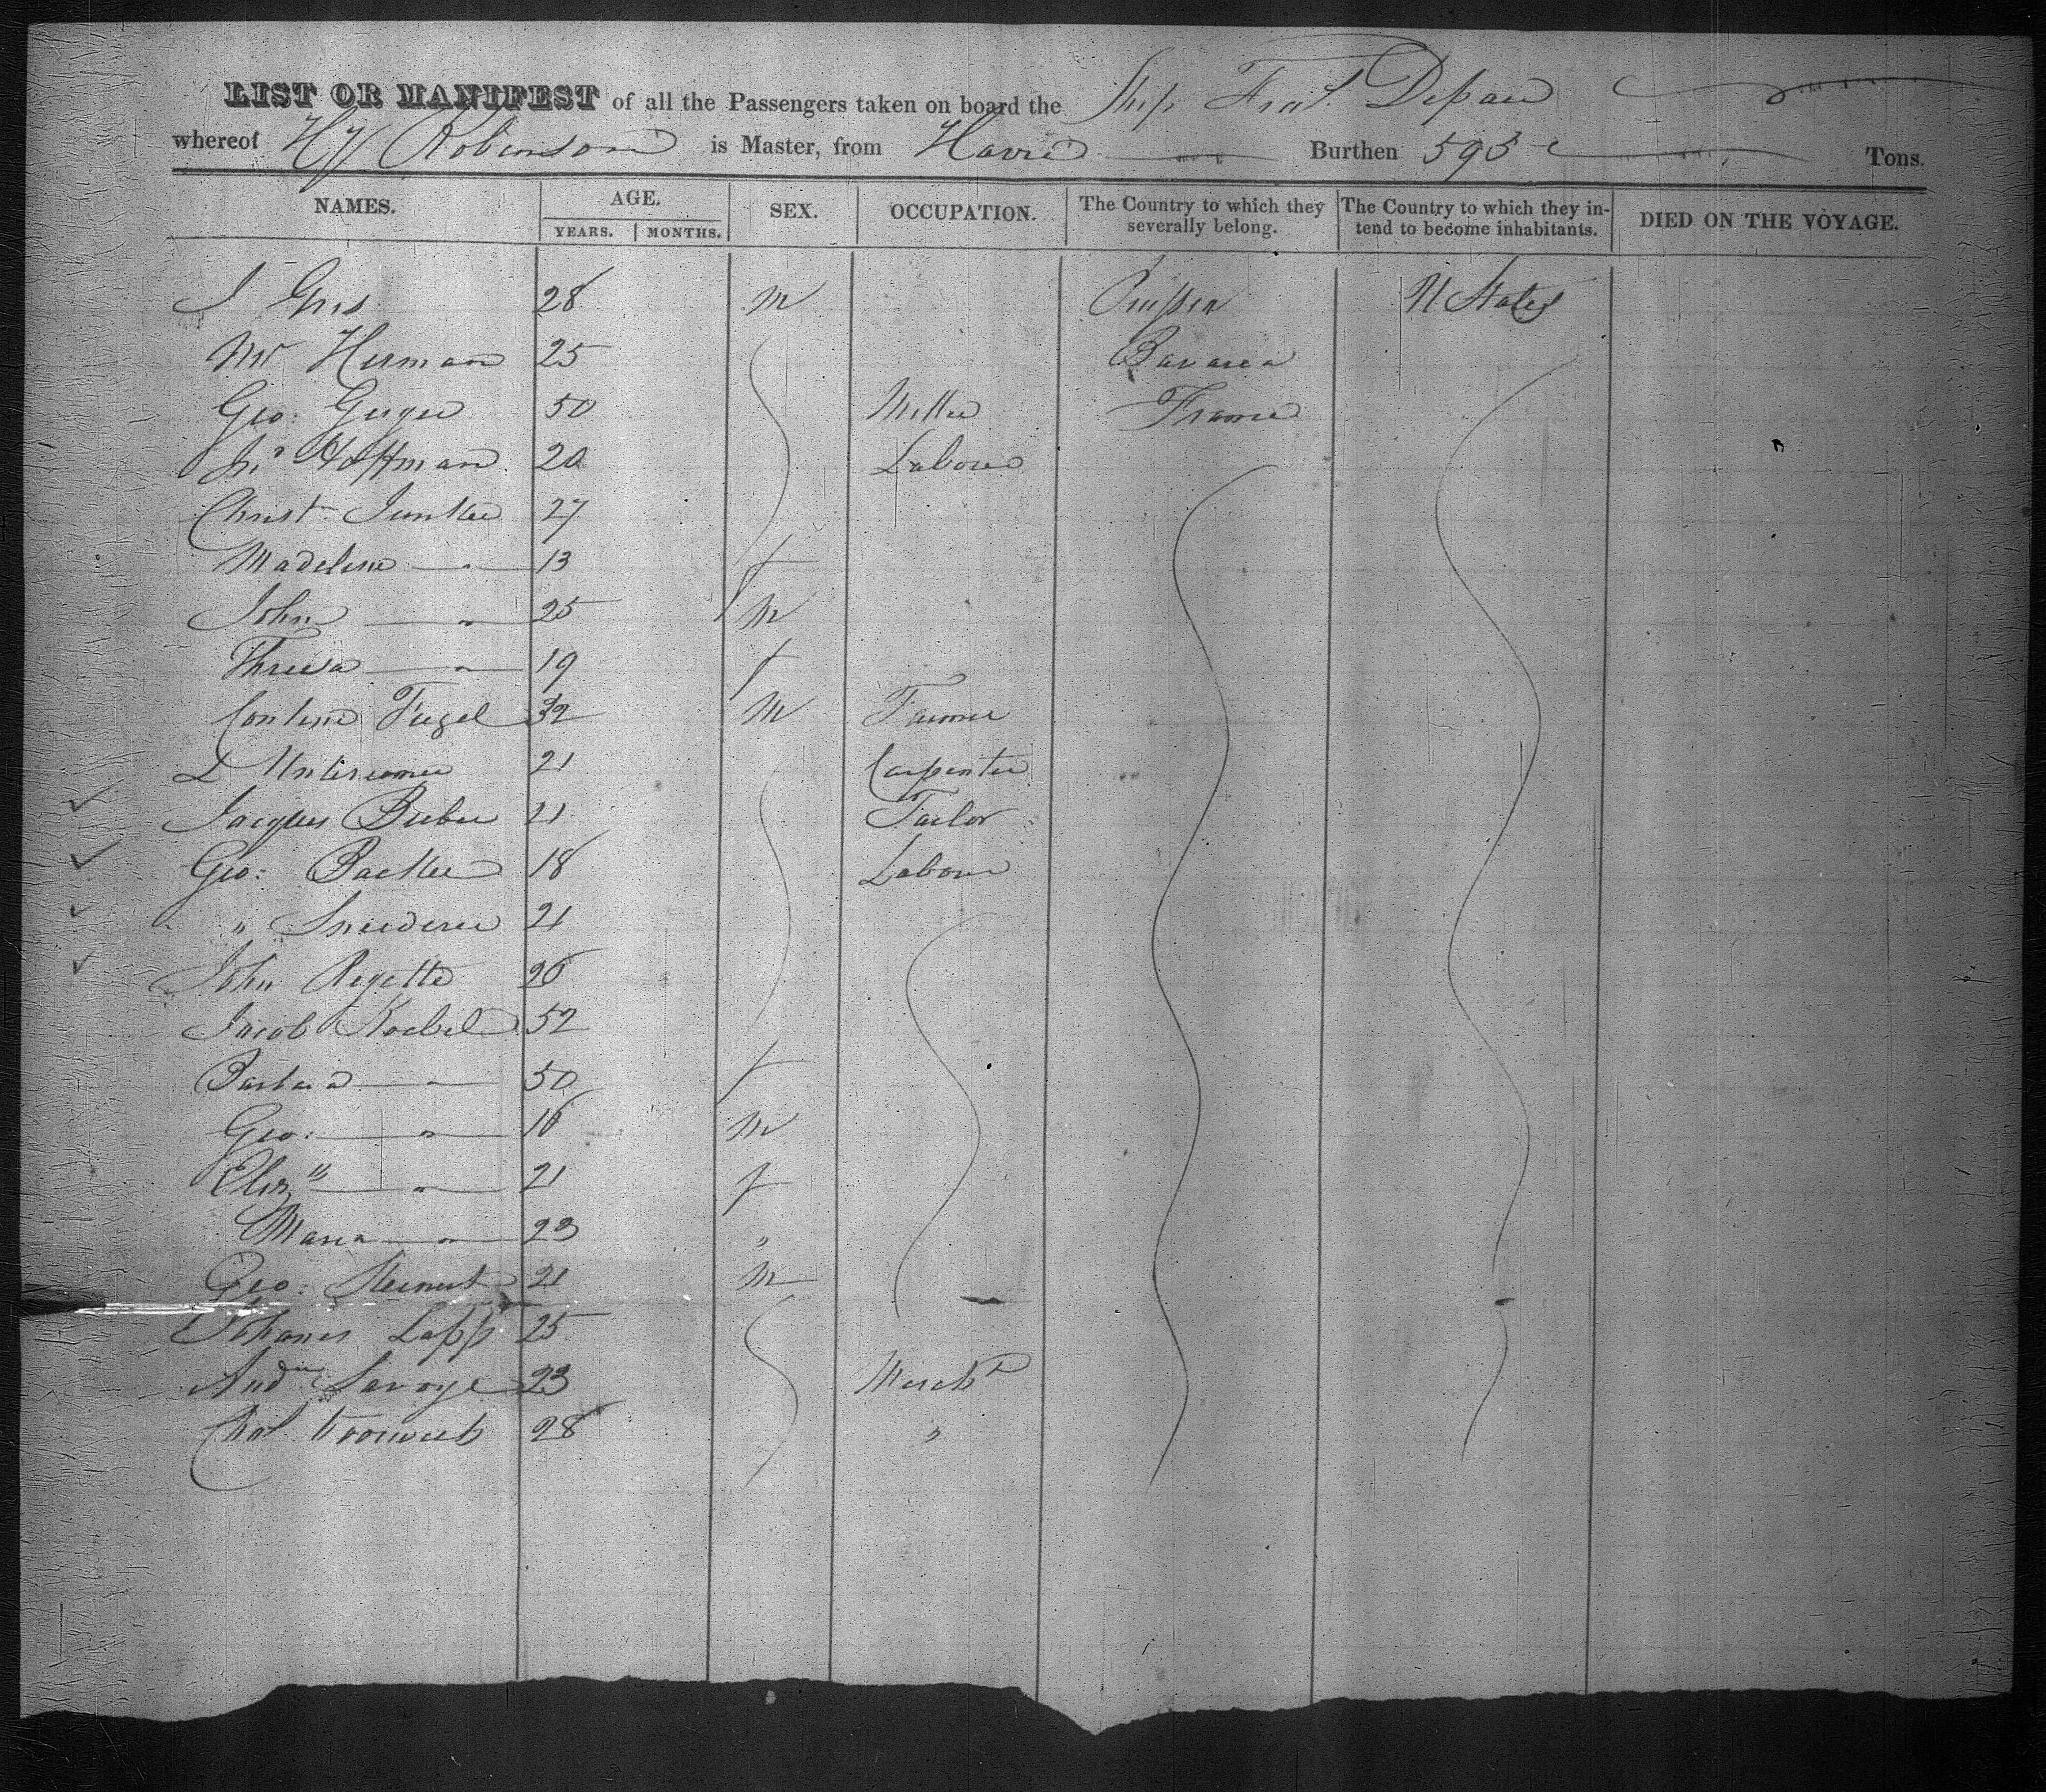 LIST OR MANIFEST of all the Passengers taken on board the Ship Fra.s Depau
whereof Hy Robinson is Master, from Havre Burthen 595 Tons.
NAMES. AGE. SEX. OCCUPATION. The Country to which they severally belong. The Country to which they intend to become inhabitants. DIED ON THE VOYAGE.
YEARS. MONTHS.
J 28 M Prussia U States
Mr Herman 25 Bavaria
Geo: Geiger 50 Miller France
Jno Hoffman 20 Labourer
Christ Junker 27
Madeline — " — 13 f
John — " — 25 M
Theresa — " — 19 f
Fugel 32 M Farmer
L 21 Carpenter
Jacques Bieber 21 Tailor
Geo: Backer 18 Labour
" Sniederer 21
John Regette 26
Jacob Koebel 52
Barbara — " — 50 f
Geo: — " — 16 M
Eliz" — " — 21 f
Maria — " — 23 "
Geo: 21 M
Johanes Lapp 25
And Savoye 23 Merch't
28 "